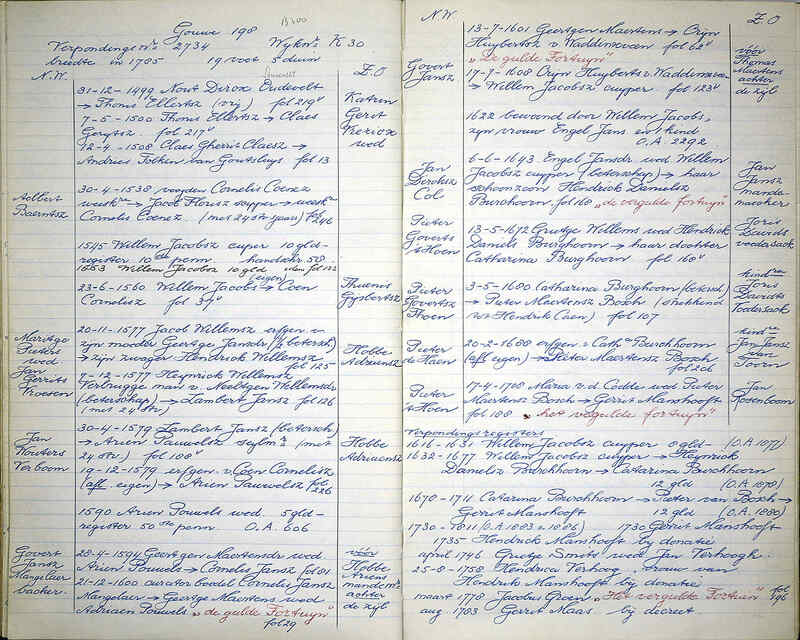 B 300
Gouwe 198
Verpondings nrs 2734 Wijknrs K 30
breedte in 1785 19 voet 5 duim
N.W. Z.O
31-12-1499 Nout Dircx Oudevelt
→ Thonis Ellertsz (vrij) fol 219v
7-5-1500 Thonis Ellertsz → Claes
Gerytsz. fol 217v
12-4-1508 Claes Gherit Claesz →
Andries Tolken van Goutsluys fol 13
Katrin
Gerit
wed
Aelbert
Baerntsz
30-4-1538 voogden Cornelis Coenez
→ Jacob Florisz →
Cornelis Coenez. (met 24 str jaars) fol 246
1545 Willem Jacobsz cuper 10 gld-
register 10de penn. handschr 58.
1553 Willem Jacobsz 10 gld idem fol 122
(eigen)
23-6-1560 Willem Jacobs → Coen
Cornelisz fol 37v
Theunis
Gysbertsz
Maritge
Pieters
wed
Jan
Gerrits
20-11-1577 Jacob Willemsz erfgen v
zijn moeder Geertge Jansdr (½ betersch)
→ zijn zwager Hendrick Willemsz
fol 125
7-12-1577 Heynrick Willemsz
Verbrugge man v. Neeltgen Willemsdr
(beterschap) → Lambert Jansz fol 126
(met 24 str)
Hobbe
Adriaensz
Jan
Wouters
Terboom
30-4-1579 Lambert Jansz (betersch)
→ Arien Pauwelsz seylmr (met
24 str.) fol 108v
19-12-1579 erfgen. v Coen Cornelisz
(afl eigen) → Arien Pauwelsz fol
226
Hobbe
Adriaensz
1590 Arien Pouwels wed 5 gld-
register 50ste penn O.A. 606
Govert
Jansz
Mangelaer
backer.
28-4-1594 Geertgen Maertensdr wed
Arien Pouwels → Cornelis Jansz fol 81
21-12-1600 curator boedel Cornelis Jansz
Mangelaer → Geertge Maertens wed
Adriaen Pouwels "de gulde Fortuyn"
fol 29
vóór
Hobbe
Ariens
mandemr
achter
de zijl
N.W. Z.O
13-7-1601 Geertgen Maertens → Orijn
Huybertsz v. Waddinxveen fol 68v
"De gulde Fortuyn"
17-9-1608 Orijn Huyberts v. Waddinxveen
→ Willem Jacobsz cuyper fol 123v
Govert
Jansz
vóór
Thomas
Maertens
achter
de zijl
1622 bewoond door Willem Jacobs,
zijn vrouw Engel Jans en 1 kind
O.A. 2292.
6-6-1643 Engel Jansdr wed Willem
Jacobsz cuyper (beterschap) → haar
schoonzoon Hendrick Danielsz
Burchoorn fol 160 "de vergulde fortuyn"
Jan
Dircksz
Cols
Jan
Jansz
mande-
maecker
Pieter
Goverts
't Hoen
13-5-1672 Grutge Willems wed Hendrick
Daniels Burghoorn → haar dochter
Catharina Burghoorn fol 160v
Joris
Davids
voedersack
Pieter
Govertsz
Thoen
3-5-1680 Catharina Burghoorn (betersch)
→ Pieter Maertensz Bosch (strekkend
tot Hendrik Caen) fol 107
kindren
Joris
Davidts
Voedersack
Pieter
de Hoen
20-2-1688 erfgen. v Catha Burchhoorn
(afl eigen) → Pieter Maertensz Bosch
fol 206
kindren
Jan Jansz
van
Toorn
Pieter
't Hoen
17-4-1708 Maria v.d. Codde wed Pieter
Maertensz Bosch → Gerrit Manshooft
fol 108 "het vergulde fortuyn"
Jan
Rosenboom
Verpondingsregisters
1616-1631 Willem Jacobsz cuyper 8 gld (O.A. 1877)
1632-1677 Willem Jacobsz cuyper → Heynrick
Danielsz Burchhoorn → Catharina Burchhoorn
12 gld (O.A. 1878)
1670-1711 Catarina Burchhoorn → Pieter van Bosch →
Gerrit Manshooft 12 gld (O.A. 1880)
1730-1811 (O.A. 1883 & 1886) 1730 Gerrit Manshooft
1735 Hendrick Manshooft bij donatie
april 1746 Grutge Smits wed Jan Terhoogh.
25-8-1758 Hendrica Terhoog vrouw van
Hendrik Manshooft bij donatie
maart 1778 Jacobus Groen "Het vergulde Fortuin" fol
196
aug 1783 Gerrit Maas bij decreet.